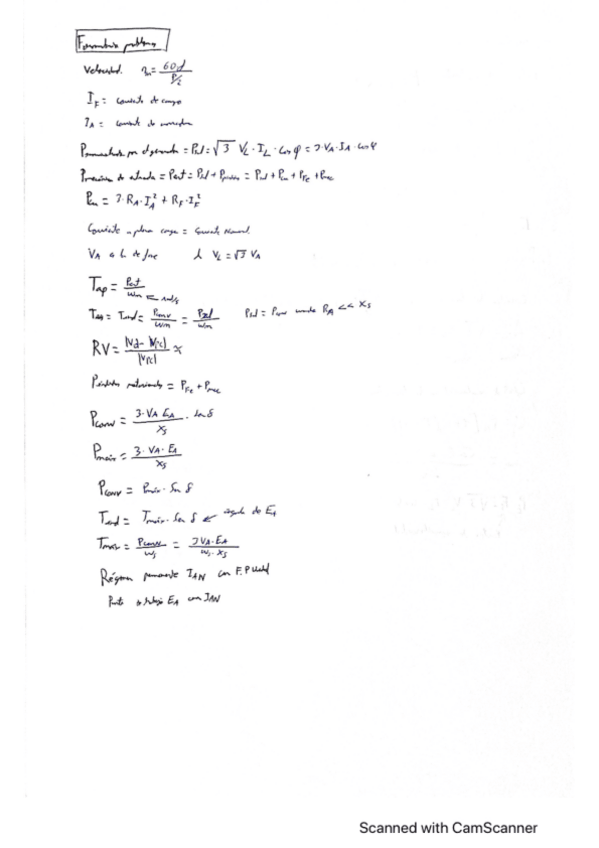 Formulario problemas
Velocidad. n_m = 60f / P/2
I_F = corriente de campo
I_A = corriente de armadura
por el generador = P_sal = √3 V_L · I_L · Cos φ = 3 · V_A · I_A · cos φ
Potencia de entrada = P_ent = P_sal + P_perdidas = P_sal + P_cu + P_Fe + P_mec
P_cu = 3 · R_A · I_A² + R_F · I_F²
Corriente a plena carga = corriente nominal
V_A de fase V_L = √3 V_A
T_ap = P_ent / W_m ← rad/s
T_ind = P_conv / W_m = P_sal / W_m P_sal = P_conv cuando R_A << X_S
RV = |V_a| - |V_pc| / |V_pc|
Pérdidas rotacionales = P_Fe + P_mec
P_conv = 3 · V_A E_A / X_S · Sen δ
P_máx = 3 · V_A · E_A / X_S
P_conv = P_máx · Sen δ
T_ind = T_máx · Sen δ ← ángulo de E_A
T_máx = P_conv / W_s = 3 V_A · E_A / W_s · X_S
Régimen permanente I_AN con F.P
Punto trabajo E_A con I_AN
Scanned with CamScanner